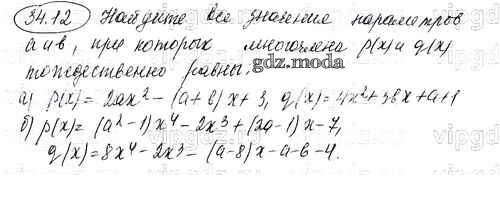 34.12 Найдите все значения параметров
а и в, при которых многочлена p(x) и g(x)
тождественно равны.
gdz.moda
а) p(x) = 2ax² - (a + в)x + 3, g(x) = 4x² + 3вx + a + 1
б) p(x) = (a² - 1)x⁴ - 2x³ + (2a - 1)x - 7,
g(x) = 8x⁴ - 2x³ - (a - 8)x - a - в - 4.